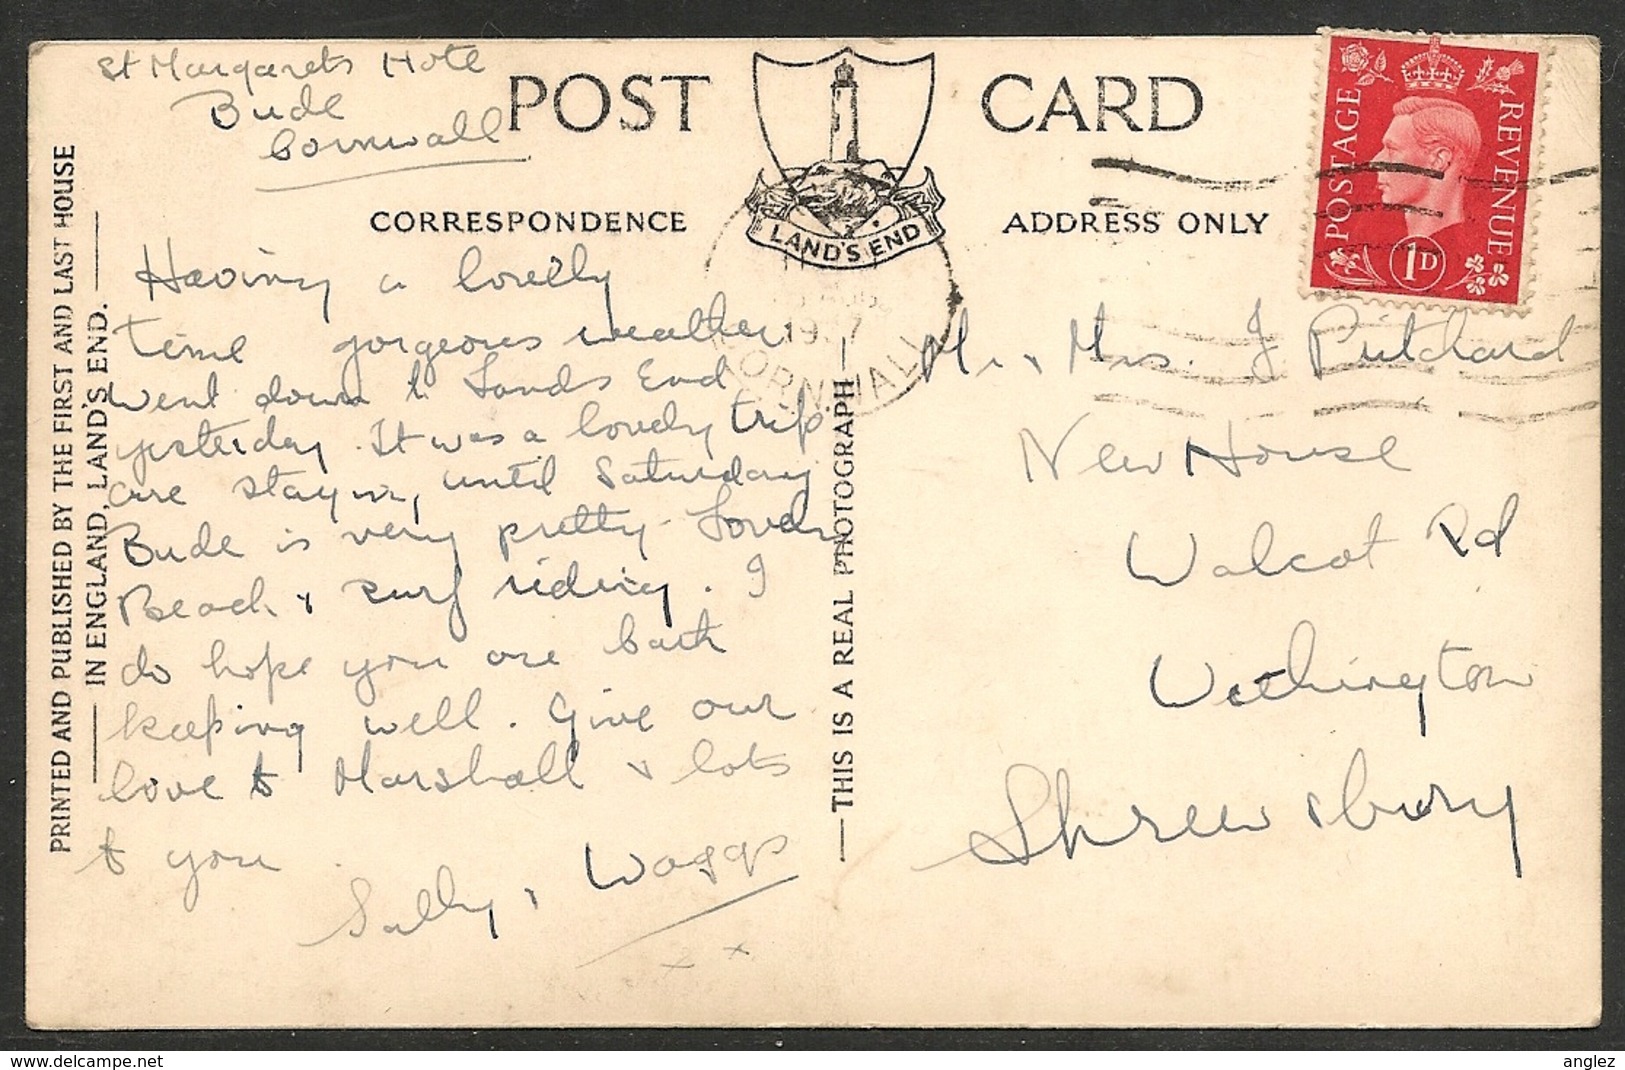 St Margarets Hotel
Bude
Cornwall
POST CARD
LAND'S END
CORRESPONDENCE
ADDRESS ONLY
POSTAGE
REVENUE
1D
1937
CORNWALL
Having a lovely
time gorgeous weather
went down to Lands End
yesterday. It was a lovely trip
are staying until Saturday
Bude is very pretty. Lovely
Beach & surf riding. I
do hope you are both
keeping well. Give our
love to Marshall & lots
to you.
Sally & Waggs
x x
Mr & Mrs. J Pritchard
New House
Walcot Rd
Withington
Shrewsbury
PRINTED AND PUBLISHED BY THE FIRST AND LAST HOUSE
IN ENGLAND, LAND'S END.
THIS IS A REAL PHOTOGRAPH
anglez